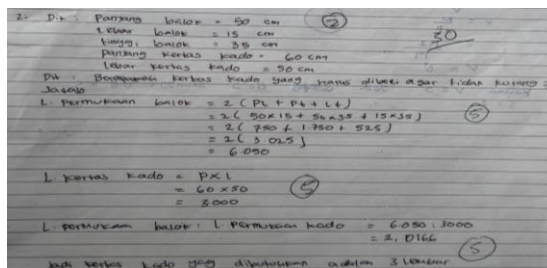 2. Dik : Panjang balok = 50 cm (2)
Lebar balok = 15 cm 30
tinggi balok = 35 cm
panjang kertas kado = 60 cm
lebar kertas kado = 50 cm
Dit : Berapakah kertas kado yang harus dibeli agar tidak kurang ?
Jawab
L. permukaan balok = 2 ( PL + Pt + Lt )
= 2 ( 50 x 15 + 50 x 35 + 15 x 35 )
= 2 ( 750 + 1.750 + 525 ) (5)
= 2 ( 3.025 )
= 6.050
L. kertas kado = P x L
= 60 x 50 (5)
= 3.000
L. permukaan balok : L. permukaan kado = 6.050 : 3000
= 2,0166 (5)
Jadi kertas kado yang dibutuhkan adalah 3 lembar